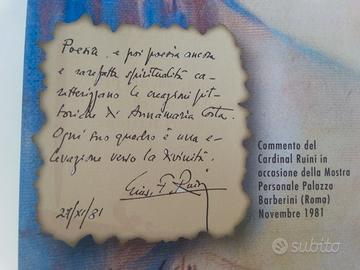 Poesia e poi poesia ancora
e rarefatta spiritualità ca-
ratterizzano le creazioni pit-
toriche di Annamaria Costa.
Ogni suo quadro è una e-
levazione verso la divinità.
27/XI/81
Commento del
Cardinal Ruini in
occasione della Mostra
Personale Palazzo
Barberini (Roma)
Novembre 1981
subito